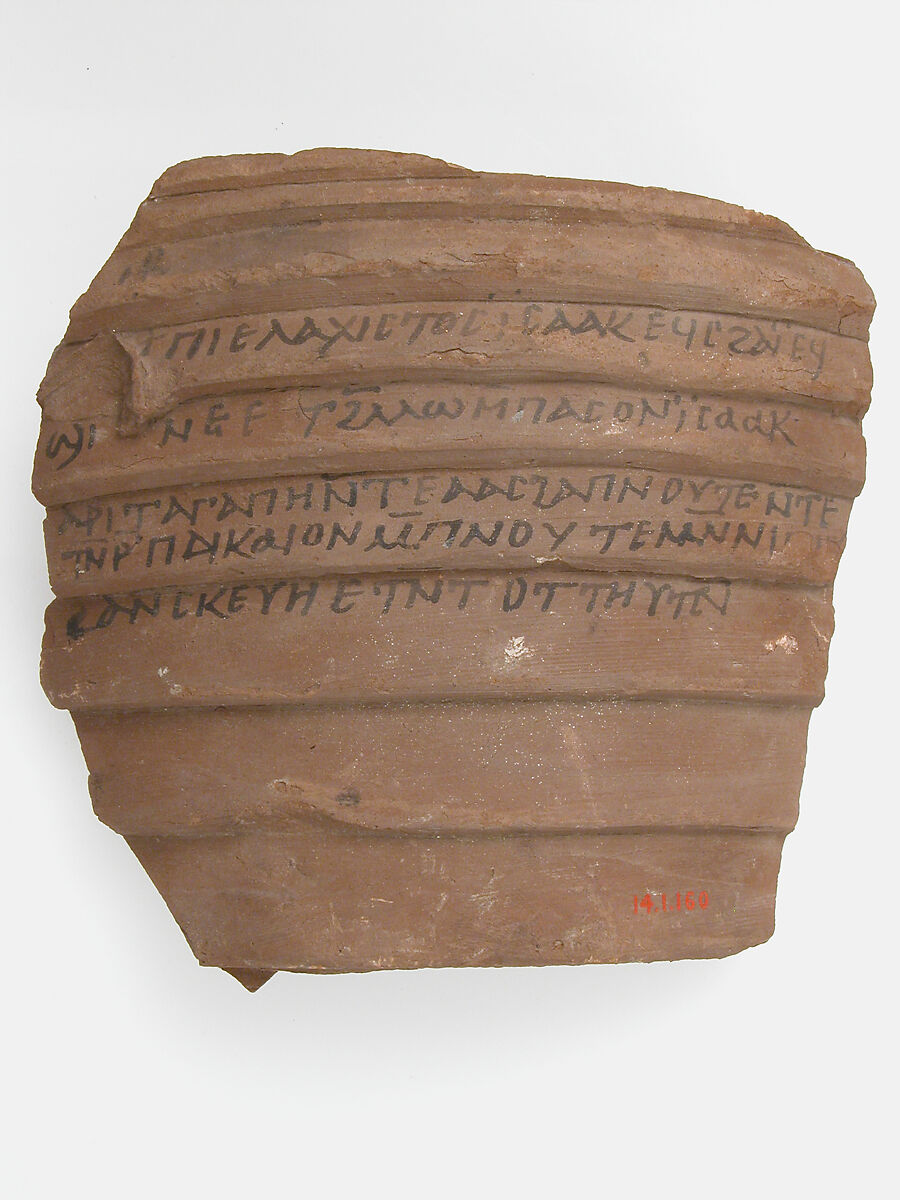 ⲡⲓⲉⲗⲁⲭⲓⲥⲧⲟⲥ ⲓ̈ⲥⲁⲁⲕ ⲉϥⲥϩⲁⲓ̈ ⲉϥ
ϣⲓⲛⲉ ⲉⲧϩⲗⲗⲱ ⲙ̄ⲡⲁⲥⲟⲛ ⲓ̈ⲥⲁⲁⲕ
ⲁⲣⲓⲧⲁⲅⲁⲡⲏ ⲛ̄ⲧⲉⲁⲁⲥ ϩⲁⲡⲛⲟⲩⲧⲉ ⲛⲧⲉ
ⲧⲛ̄ⲣ̄ⲡⲇⲓⲕⲁⲓⲟⲛ ⲙ̄ⲡⲛⲟⲩⲧⲉ
ϩⲟⲛⲥⲕⲉⲩⲏ ⲉⲧⲛⲧⲟⲧⲧⲏⲩⲧⲛ̄
14.1.150